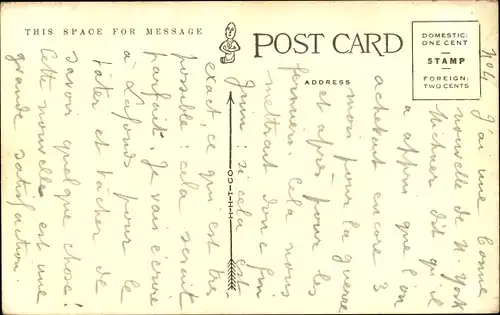 THIS SPACE FOR MESSAGE
POST CARD
ADDRESS
DOMESTIC:
ONE CENT
STAMP
FOREIGN:
TWO CENTS
H-H-T-CO.
J'ai une bonne
nouvelle de N. York
dit qu'il
a appris que l'on
achetait encore 3
mois pour la guerre
et après pour les
fermiers. Cela nous
mettrait donc fin
Juin: si cela est
exact, ce qui est très
possible cela serait
parfait. Je vais écrire
à Lafonds pour le
tâter et tâcher de
savoir quelque chose!
Cette nouvelle est une
grande satisfaction.